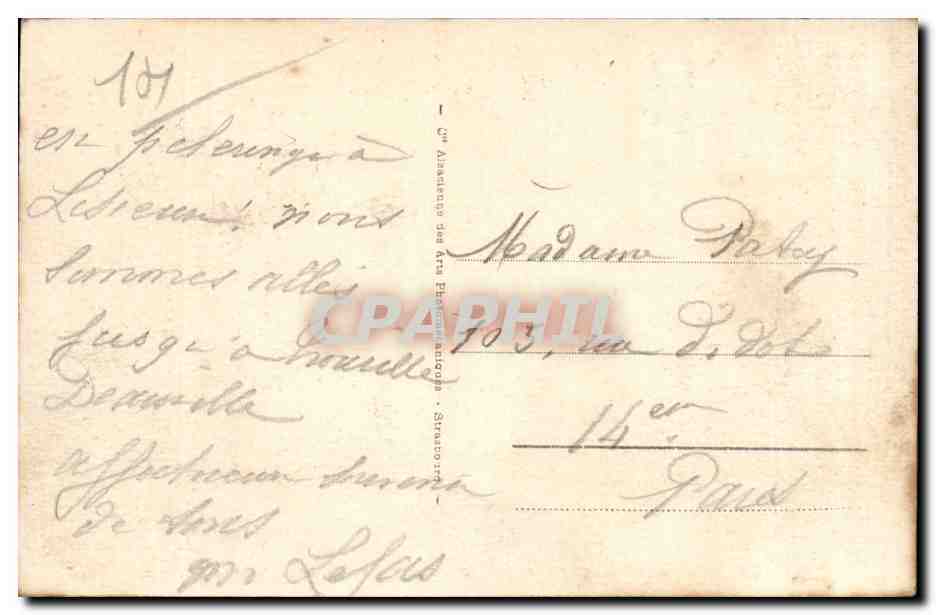 en pelerinage à
Lisieux, nous
sommes allés
jusqu'à Trouville
Deauville
affectueux souvenir
de tous
Lefas
- Cie Alsacienne des Arts Photomécaniques - Strasbourg -
CPAPHIL
Madame Patay
103, rue Didot
14em
Paris